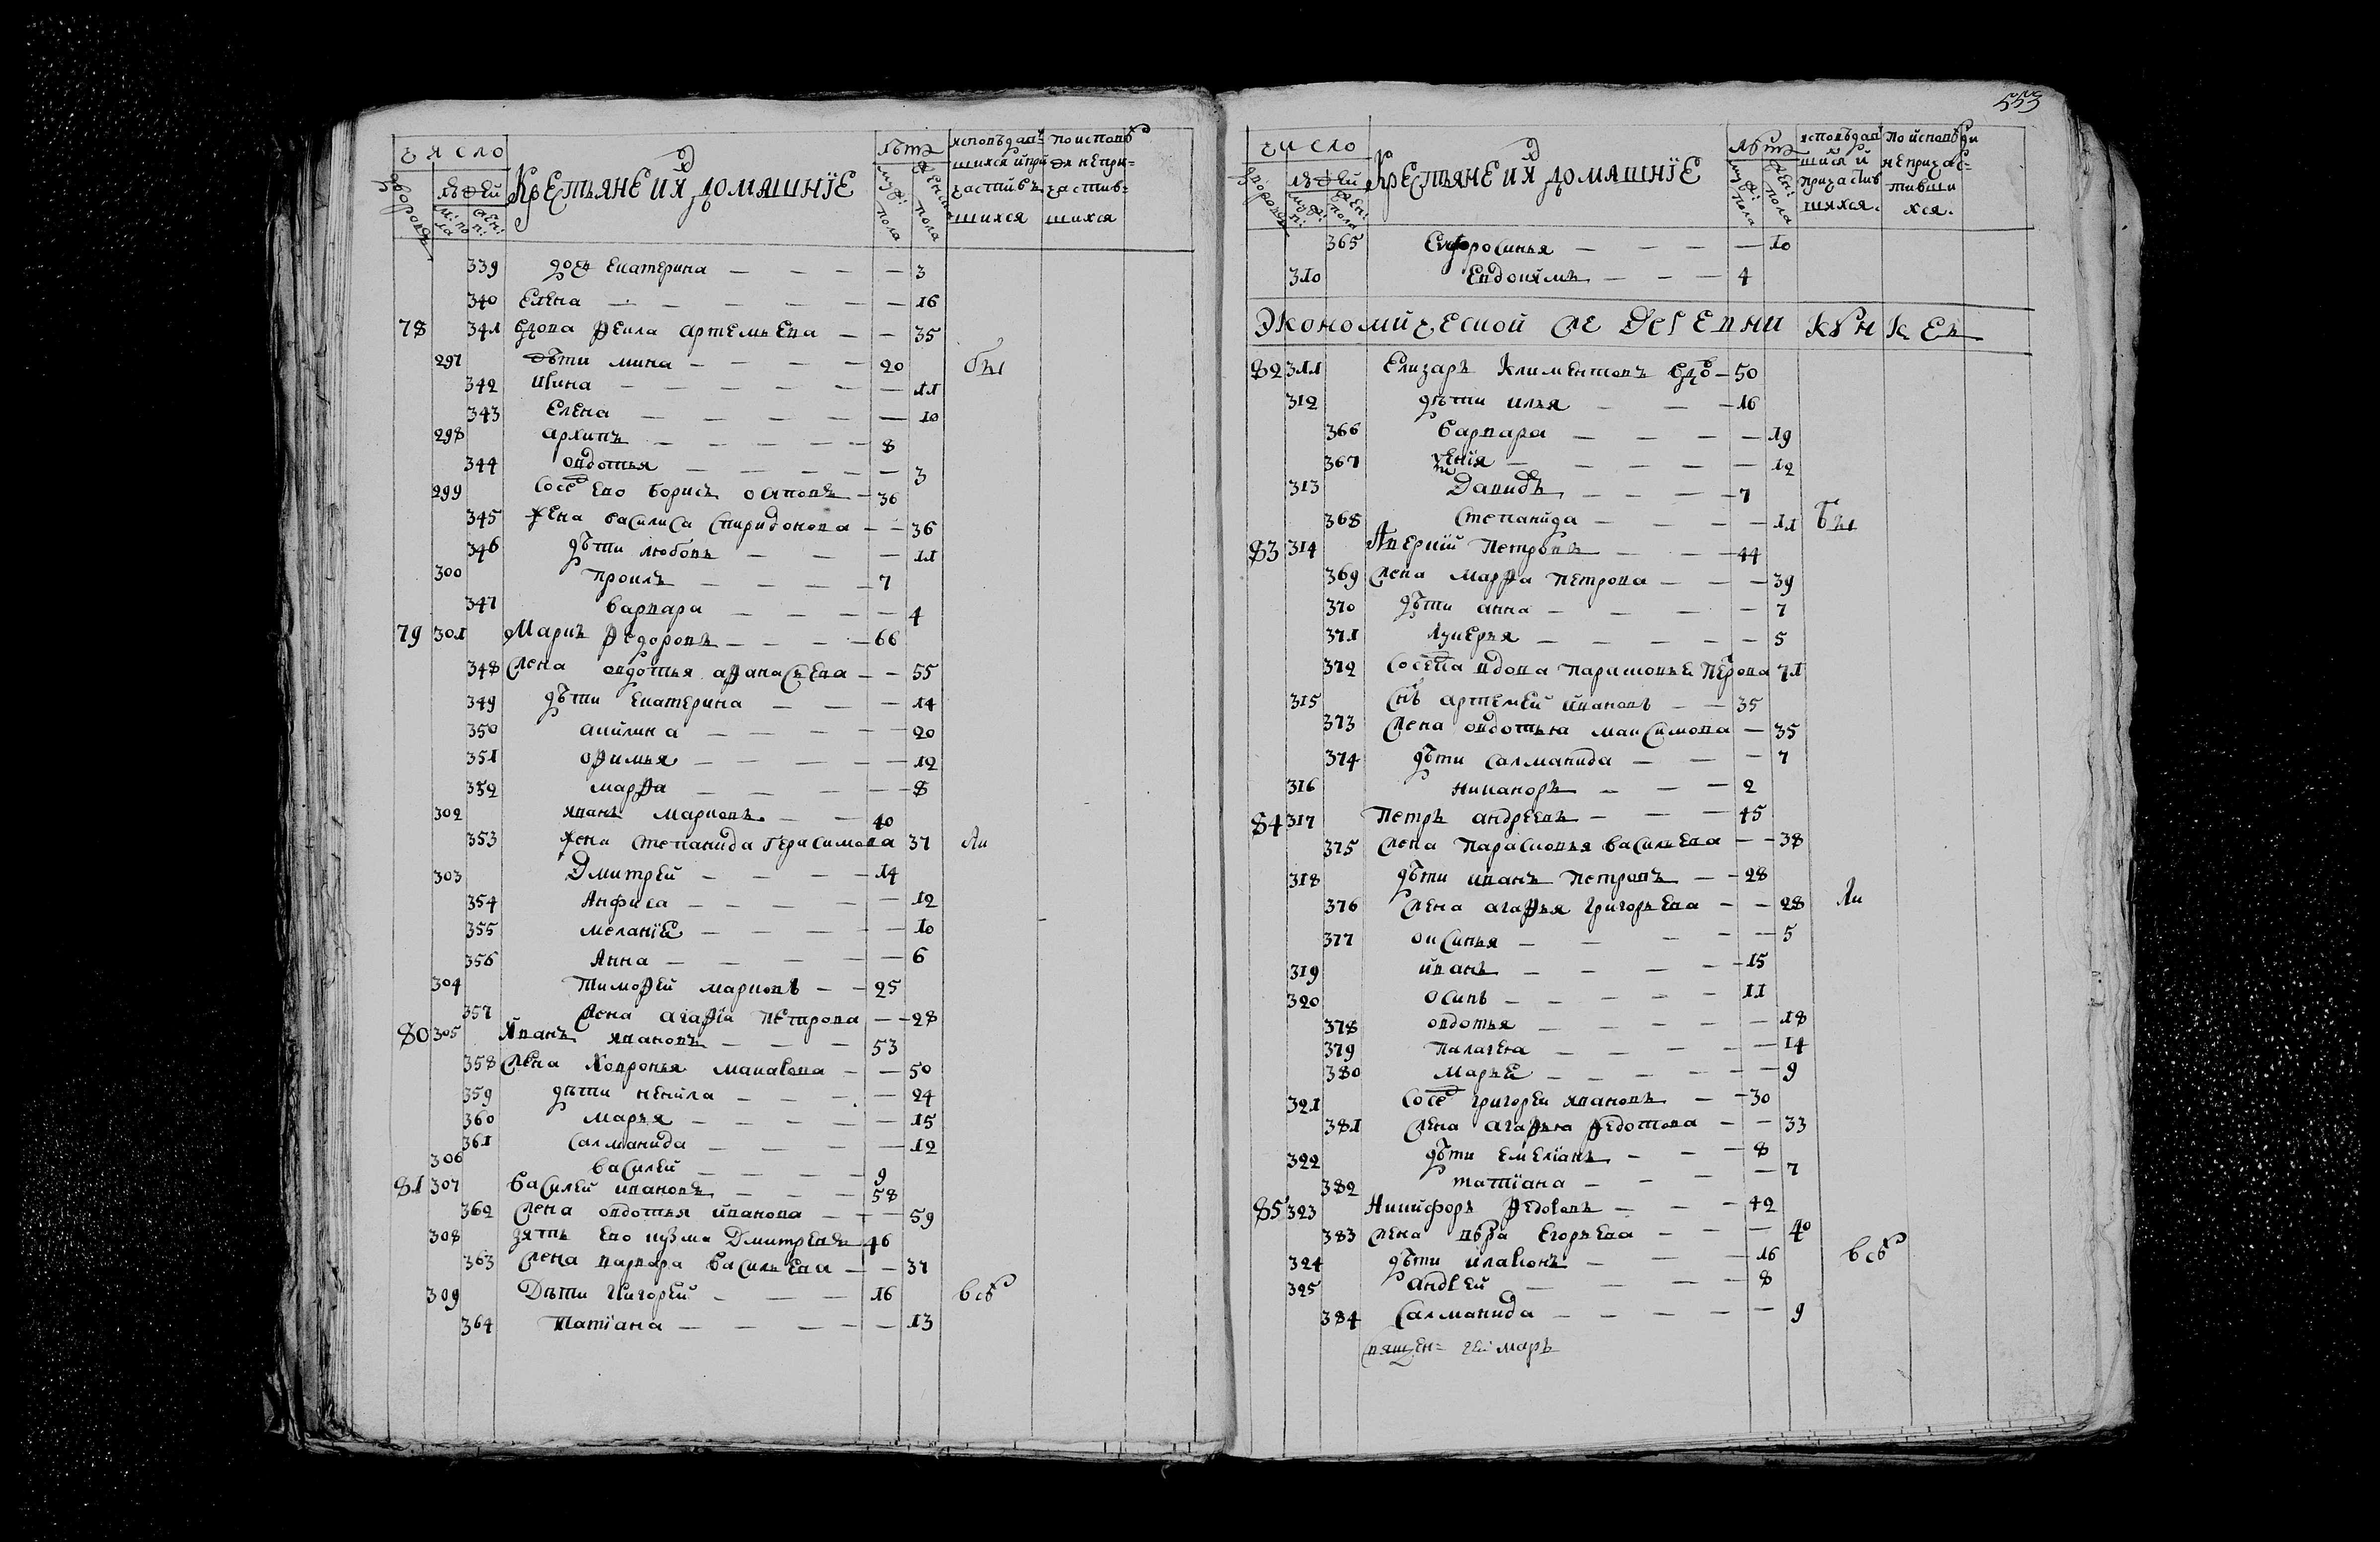 число
дворовъ
людей
муж: пола
жен: п:
Крестьяне и их домашнїе
лѣтъ
муж: пола
женска пола
исповѣдав=
шихся и при
частивъ
шихся
по исповѣ
ди непри=
частив=
шихся
339 дочь Екатерина — 3
340 Елена — 16
78 341 вдова Фекла артемьева — 35
297 дѣти мина — 20 бы
342 Ирина — 11
343 Елена — 10
298 архипъ — 8
344 овдотья — 3
299 Сосед Ево борисъ осиповъ — 36
345 жена василиса спиридонова — 36
346 дѣти любовь — 11
300 проклъ — 7
347 варвара — 4
79 301 Маркъ Федоровъ — 66
348 жена овдотья афанасьева — 55
349 дѣти Екатерина — 14
350 акилина — 20
351 офимья — 12
352 марфа — 8
302 иванъ марковъ — 40
353 жена степанида герасимова 37 ли
303 Дмитрей — 14
354 Анфиса — 12
355 меланїе — 10
356 Анна — 6
304 тимофей марковъ — 25
357 жена агафїа петрова — 28
80 305 иванъ ивановъ — 53
358 жена ховронья макавова — 50
359 дѣти ненила — 24
360 марья — 15
361 Салманида — 12
306 василей — 9
81 307 василей ивановъ — 58
362 жена овдотья иванова — 59
308 зять Ево кузма Дмитревъ 46
363 жена варвара васильева — 37
309 Дѣти Григорей — 16 всѣ
364 Татїана — 13
553
число
дворовъ
людей
муж: п:
жен: пола
Крестьяне и их домашнїе
лѣтъ
муж: пола
жен: пола
исповѣдав
шися и
причастив
шихся.
по исповѣди
непричас=
тивши
хся.
365 Ефросинья — 10
310 Евдокимъ — 4
Экономической же Деревни Кункев
82 311 Елизаръ климентовъ вдо — 50
312 дѣти илья — 16
366 варвара — 19
367 ксенїя — 12
313 Давидъ — 7
368 степанида — 11 бы
83 314 Аверкїй Петровъ — 44
369 жена марфа петрова — 39
370 дѣти анна — 7
371 лукерья — 5
372 соседка вдова парасковье петрова 71
315 сн҃ъ артемей ивановъ — 35
373 жена овдотья максимова — 35
374 дѣти салманида — 7
316 никаноръ — 2
84 317 петръ андреевъ — 45
375 жена парасковья васильева — 38
318 дѣти иванъ петровъ — 28
376 жена агафья григорьева — 28 ли
377 оксинья — 5
319 иванъ — 15
320 осипъ — 11
378 овдотья — 18
379 палагея — 14
380 марье — 9
321 Сосед григорей ивановъ — 30
381 жена агафья федотова — 33
322 дѣти емелїанъ — 8
382 татїана — 7
85 323 Никифоръ Федосовъ — 42
383 жена вѣра Егорьева — 40
324 дѣти иларионъ — 16 всѣ
325 Андрей — 8
384 Салманида — 9
Священ= маръ